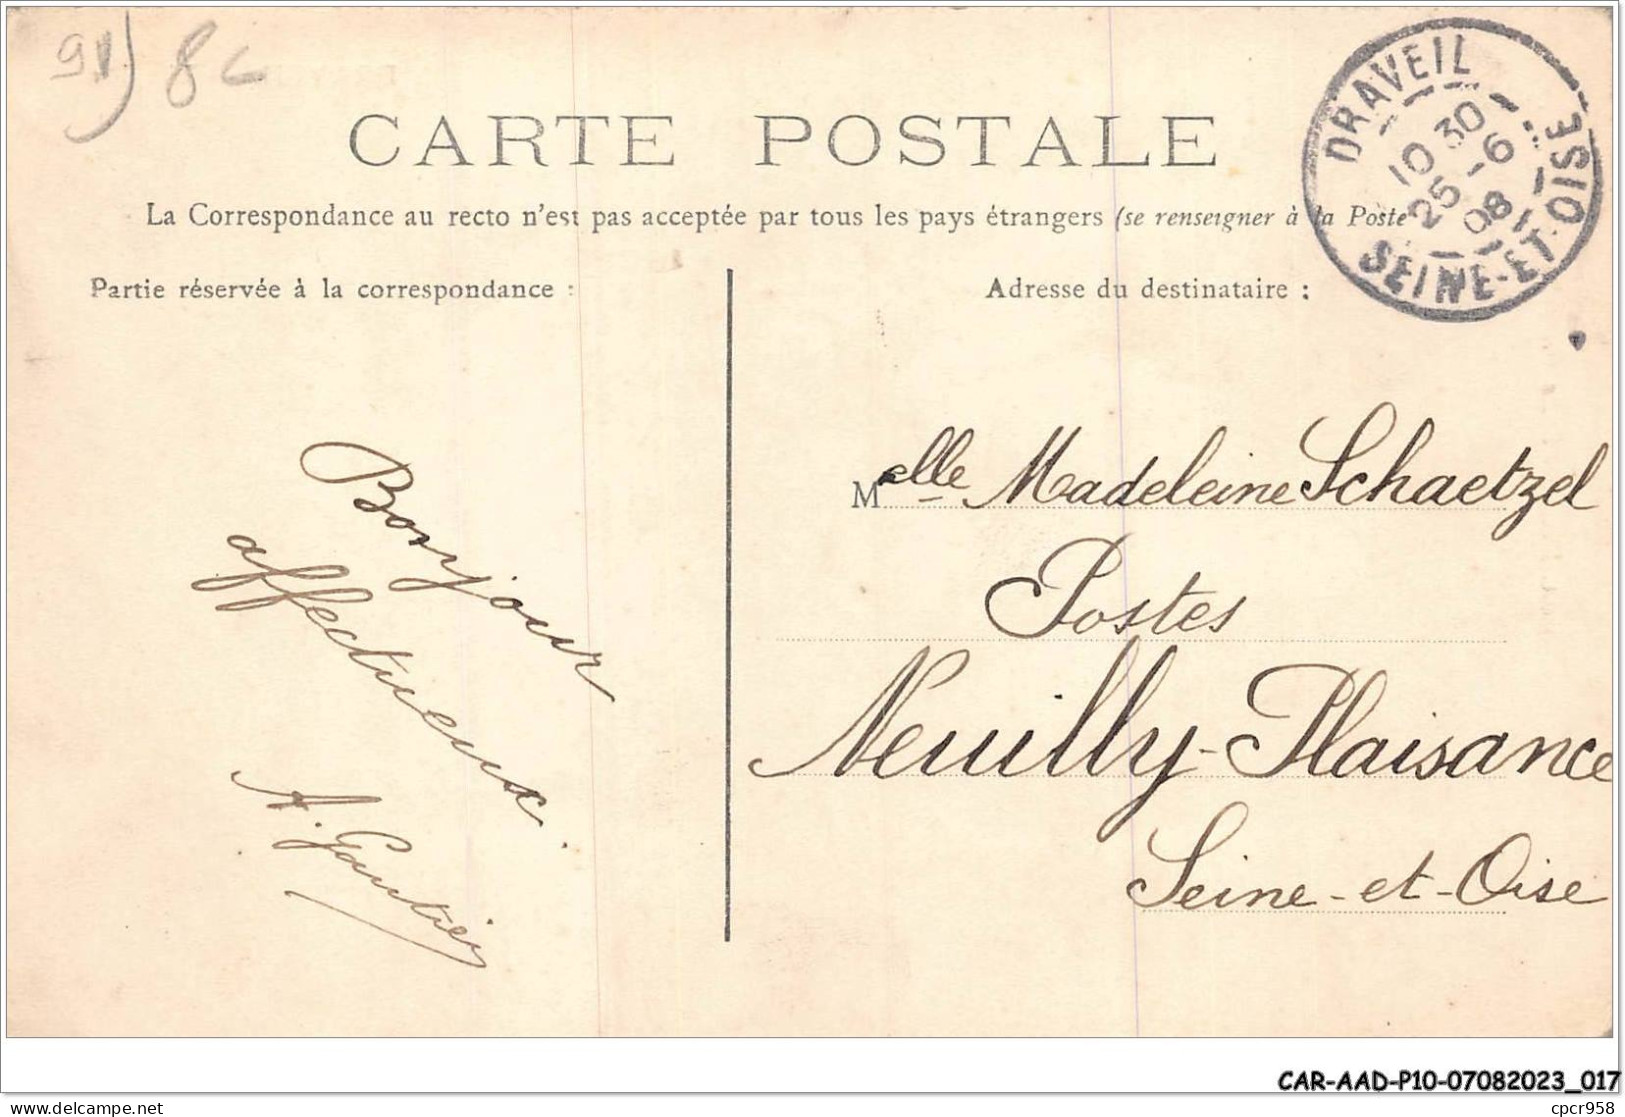 91) 8c
CARTE POSTALE
La Correspondance au recto n'est pas acceptée par tous les pays étrangers (se renseigner à la Poste
Partie réservée à la correspondance :
Adresse du destinataire :
DRAVEIL
10 30
25 - 6
08
SEINE-ET-OISE
Bonjour
affectueux.
A. Gautier
Melle Madeleine Schaetzel
Postes
Neuilly-Plaisance
Seine-et-Oise
CAR-AAD-P10-07082023_017
delcampe.net
cpcr958